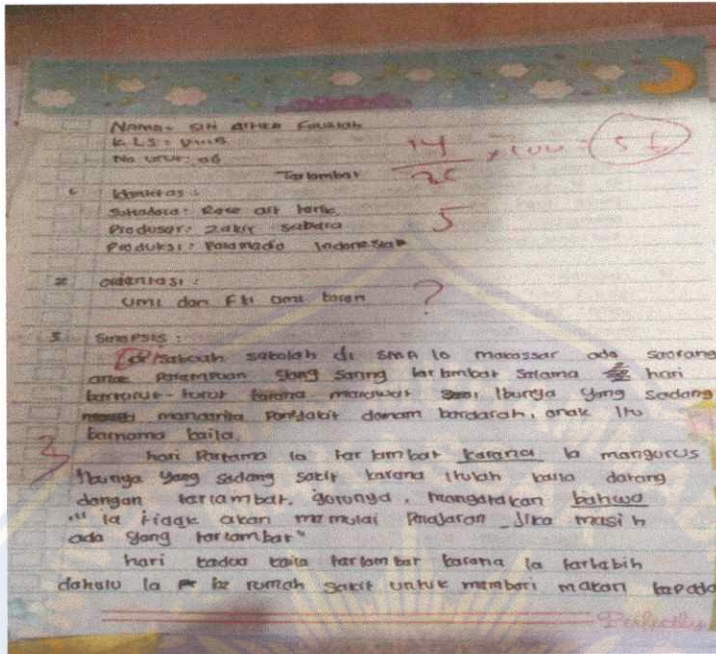 Nama: Siti
KLS: VIII B
No urut: 26
Terlambat
14
x 100 = 56
25
1. Identitas:
Sutradara: Rase
Produser: Zakir Sabara
Produksi: Paramadia Indonesia
5
2. orientasi:
Umi dan Umi
?
3. Sinopsis:
di sabuah sakolah di SMA 10 makassar ada saorang
anak parampuan yang saring tarlambat salama hari
barturut-turut karana marawat Ibunya yang sadang
mandarita panyakit damam bardarah, anak itu
barnama Laila.
3
hari Partama Ia tarlambat karana Ia mangurus
Ibunya yang sadang sakit karana itulah Laila datang
dangan tarlambat. gurunya, mangatakan bahwa
" Ia tidak akan mamulai Palajaran Jika masih
ada yang tarlambat"
hari kadua Laila tarlambat karana Ia tarlabih
dahulu Ia ke rumah sakit untuk mambari makan kapada
Perfectly